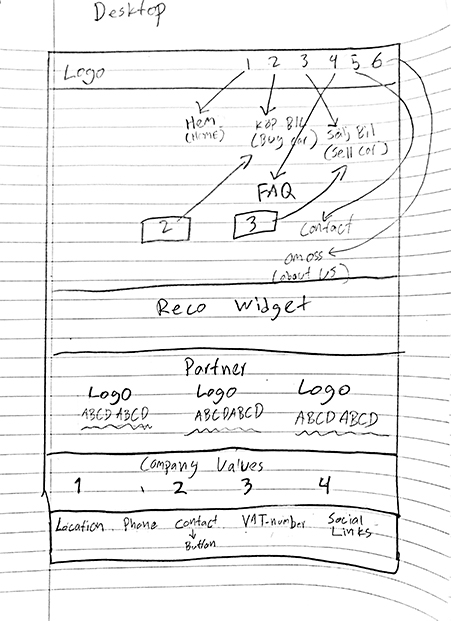 Desktop
Logo 1 2 3 4 5 6
Hem
(Home)
KÖP BIL
(Buy car)
Sälj Bil
(Sell car)
FAQ
2 3
Contact
om oss
(about us)
Reco Widget
Partner
Logo Logo Logo
ABCD ABCD ABCDABCD ABCD ABCD
Company Values
1 2 3 4
Location Phone Contact VAT-number Social
Links
Button